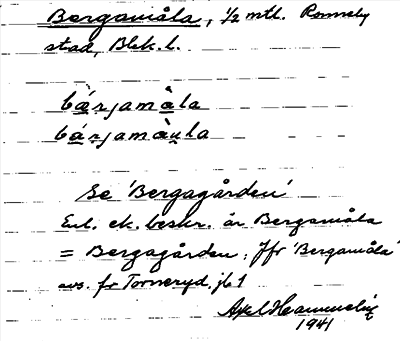 Bergamåla, 1/2 mtl. Ronneby
stad, Blek. l.
bærjamåla
bærjamåula
Se 'Bergagården'
Enl. ek. beskr. är Bergamåla
= Bergagården. Jfr 'Bergamåla'
avs. fr Torneryd jb 1
Axel
1941